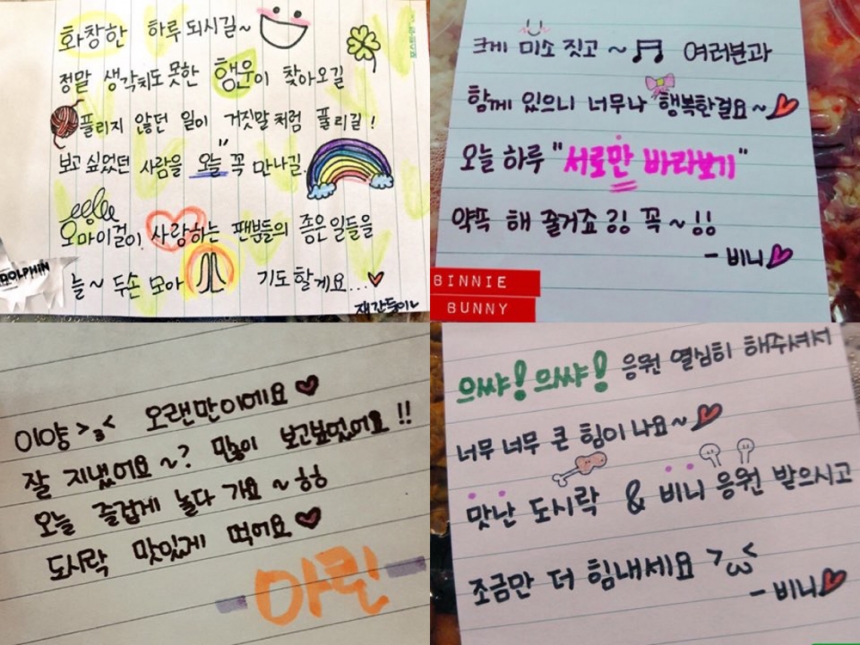 화창한 하루 되시길~
정말 생각치도 못한 행운이 찾아오길
풀리지 않던 일이 거짓말처럼 풀리길!
보고 싶었던 사람을 "오늘" 꼭 만나길.
오마이걸이 사랑하는 팬분들의 좋은일들을
늘~ 두손 모아 기도할게요...♥
재간둥이
DOLPHIN
크게 미소 짓고~♬ 여러분과
함께 있으니 너무나 행복한걸요~♥
오늘 하루 "서로만 바라보기"
약똑 해 줄거죠 킹 꼭~!!
- 비니♥
BINNIE
BUNNY
이양 >3< 오랜만이에요♥
잘 지냈어요~? 많이 보고싶었어요!!
오늘 즐겁게 놀다 가요~ㅎㅎ
도시락 맛있게 먹어요♥
아린
으쌰! 으쌰! 응원 열심히 해주셔서
너무 너무 큰 힘이 나요~♥
맛난 도시락 & 비니 응원 받으시고
조금만 더 힘내세요 >ω<
- 비니♥